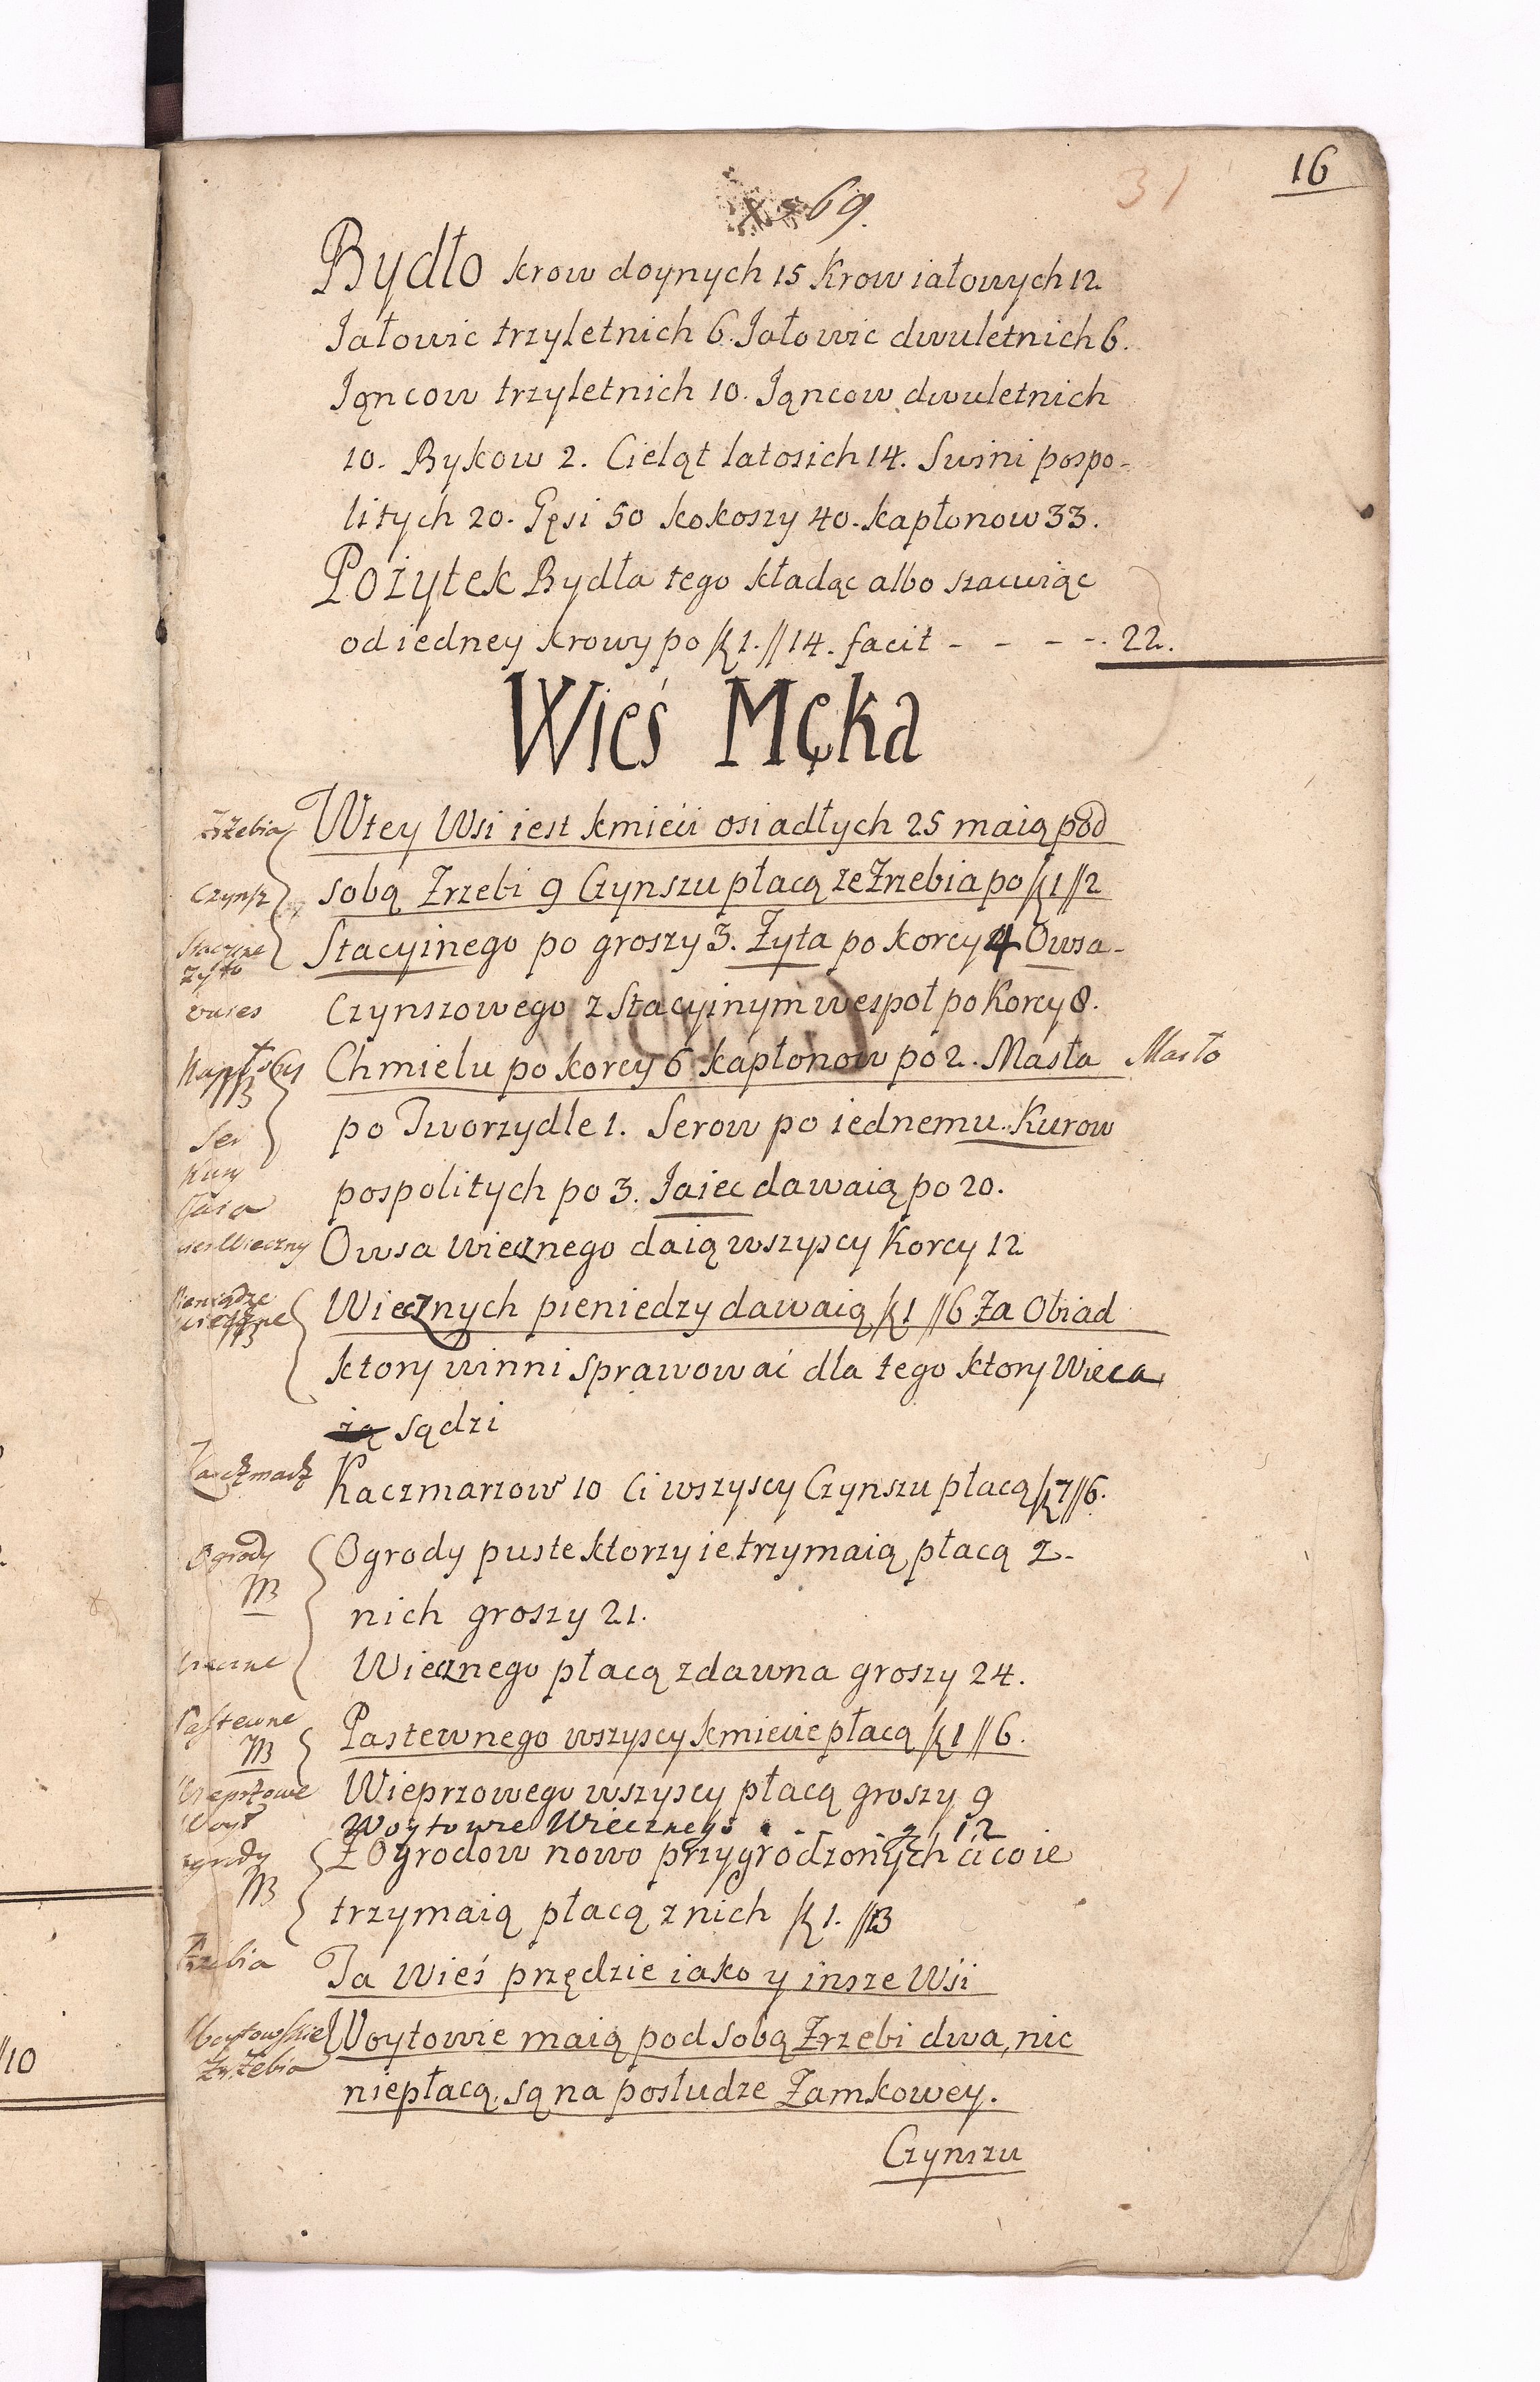 16
31
69.
Bydło krow doynych 15 Krow iałowych 12
Jałowic trzyletnich 6. Jałowic dwuletnich 6.
Jąncow trzyletnich 10. Jąncow dwuletnich
10. Bykow 2. Cieląt latosich 14. Swini pospo-
litych 20. Gęsi 50 kokoszy 40. kapłonow 33.
Pożytek Bydła tego kładąc albo szacuiąc
od iedney krowy po ʞ 1. // 14. facit - - - - 22.
Wieś Męka
Zrzebia
Wtey Wsi iest kmieci osiadłych 25 maią pod
Czynsz
sobą Zrzebi 9 Czynszu płacą ze Zrzebia po ʞ 1 // 2
Stacyine
Stacyinego po groszy 3. Żyta po korcy 4 Owsa-
Żyto
owies
Czynszowego z Stacyinym wespoł po Korcy 8.
Chmielu po korcy 6 kapłonow po 2. Masła
Masło
Ser
po Tworzydle 1. Serow po iednemu. Kurow
Kury
Jaia
pospolitych po 3. Jaiec dawaią po 20.
Wieczny
Owsa wiecznego daią wszyscy Korcy 12
Pieniądze
wieczne
Wiecznych pieniedzy dawaią ʞ 1 // 6 Za Obiad
ktory winni sprawować dla tego ktory Wieca
żą sądzi
Karczmarz
Kaczmarzow 10 Ci wszyscy Czynszu płacą ʞ 7 // 6.
Ogrody
Ogrody puste ktorzy ie trzymaią płacą z-
nich groszy 21.
Wieczne
Wiecznego płacą zdawna groszy 24.
Pastewne
Pastewnego wszyscy kmiecie płacą ʞ 1 // 6.
Wieprzowe
Wieprzowego wszyscy płacą groszy 9
Woyt
Woytowie Wiecznego - - - g 12
Ogrody
Z Ogrodow nowo przygrodzonych ci co ie
trzymaią płacą z nich ʞ 1. // 13
Zrzebia
Ta Wieś przędzie iako y insze Wsi
Woytowskie
Zrzebia
Woytowie maią pod sobą Zrzebi dwa, nic
niepłacą. są na posłudze Zamkowey.
Czynszu
//10